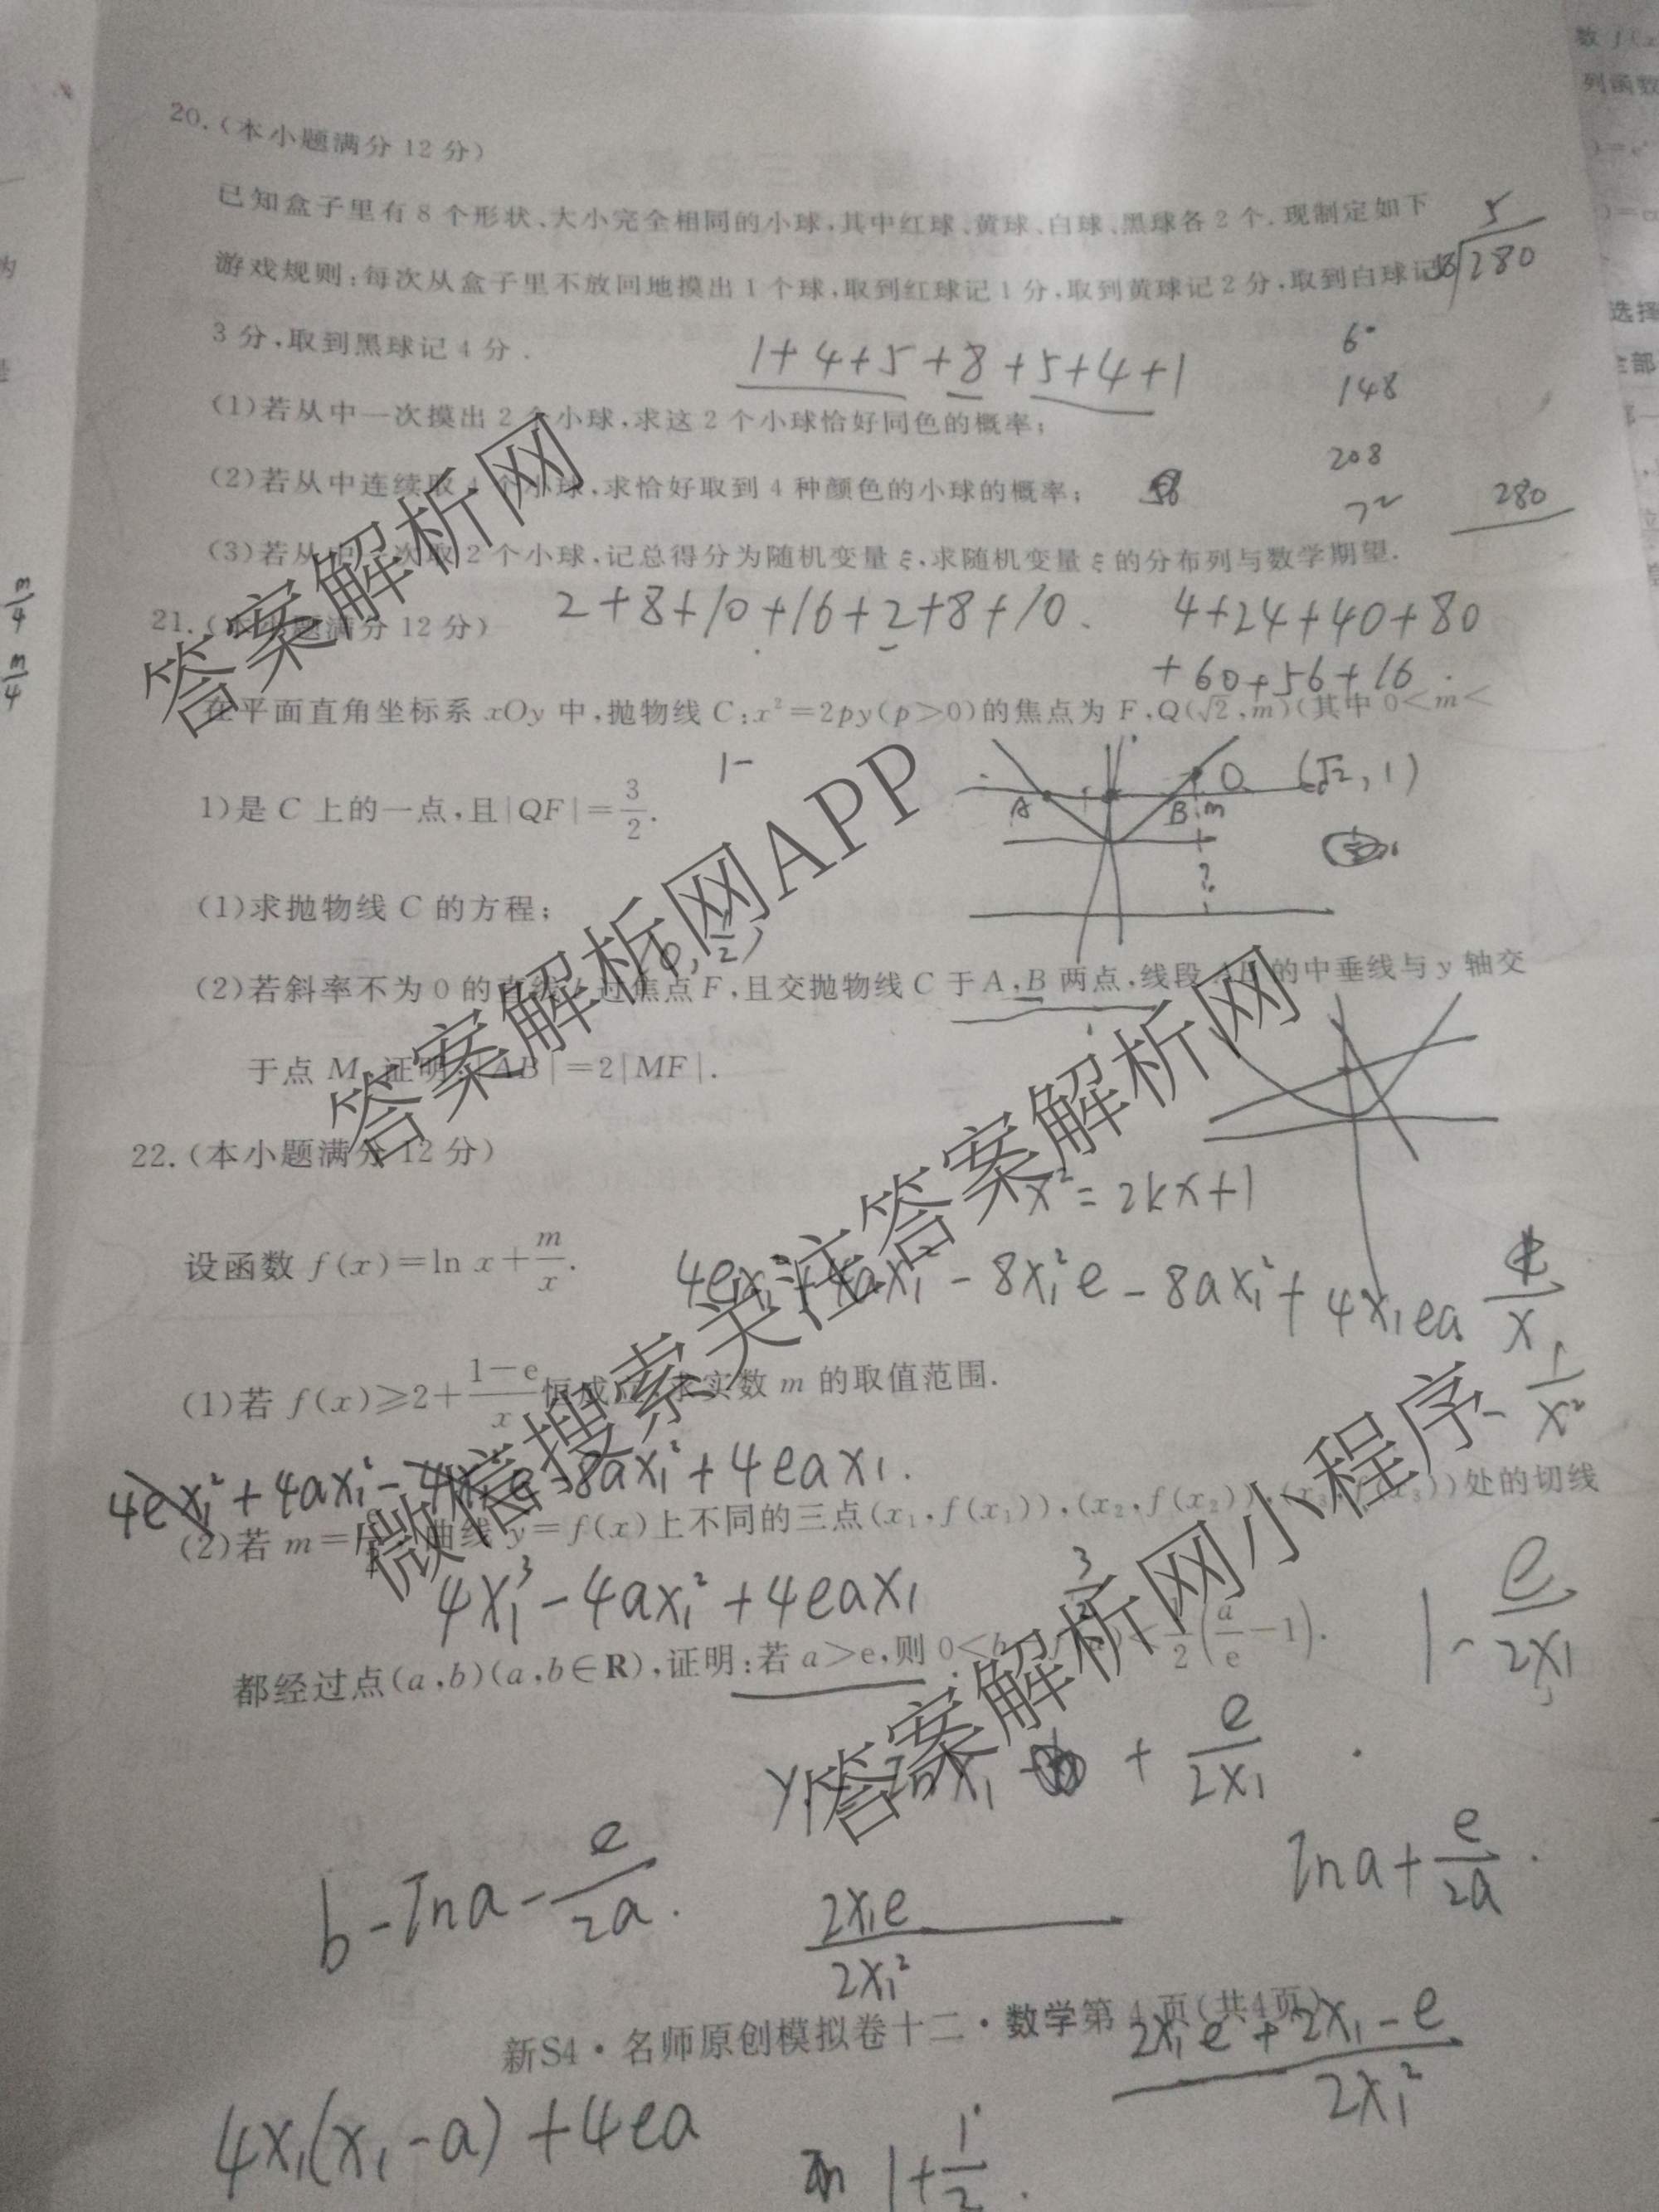 20.(本小题满分 12 分)
已知盒子里有 8 个形状、大小完全相同的小球,其中红球、黄球、白球、黑球各 2 个.现制定如下
游戏规则:每次从盒子里不放回地摸出 1 个球,取到红球记 1 分,取到黄球记 2 分,取到白球记
3 分,取到黑球记 4 分.
5
280
1+4+5+8+5+4+1
60
148
(1)若从中一次摸出 2 个小球,求这 2 个小球恰好同色的概率;
208
(2)若从中连续取 4 个小球,求恰好取到 4 种颜色的小球的概率;
72
280
(3)若从中一次取 2 个小球,记总得分为随机变量 ξ,求随机变量 ξ 的分布列与数学期望.
21.(本小题满分 12 分)
2+8+10+16+2+8+10
4+24+40+80
+60+56+16
在平面直角坐标系 xOy 中,抛物线 C:x²=2py(p>0)的焦点为 F,Q(√2,m)(其中 0<m<
1-
1)是 C 上的一点,且|QF|=3/2.
A
B
m
(√2,1)
(1)求抛物线 C 的方程;
(2)若斜率不为 0 的直线 过焦点 F,且交抛物线 C 于 A,B 两点,线段 AB 的中垂线与 y 轴交
于点 M,证明:|AB|=2|MF|.
22.(本小题满分 12 分)
x²=2kx+1
设函数 f(x)=ln x+m/x.
4ex₁²+4ax₁²-8x₁²e-8ax₁²+4x₁ea
(1)若 f(x)≥2+(1-e)/x 恒成立,求实数 m 的取值范围.
-1/x²
+4ax₁²
-8ax₁²+4eax₁.
(2)若 m= 曲线 y=f(x)上不同的三点(x₁,f(x₁)),(x₂,f(x₂)),(x₃,f(x₃))处的切线
4x₁³-4ax₁²+4eax₁
1-e/2x₁
都经过点(a,b)(a,b∈R),证明:若 a>e,则 0<b (a/e-1).
+e/2x₁
b-lna-e/2a.
lna+e/2a.
2x₁e/2x₁²
新S4·名师原创模拟卷十二·数学第 4 页(共4页)
(2x₁e+2x₁-e)/2x₁²
4x₁(x₁-a)+4ea
1+1/2.
m/4
m/4
选择
列函数
答案解析网
答案解析网APP
微信搜索关注答案解析网
答案解析网小程序